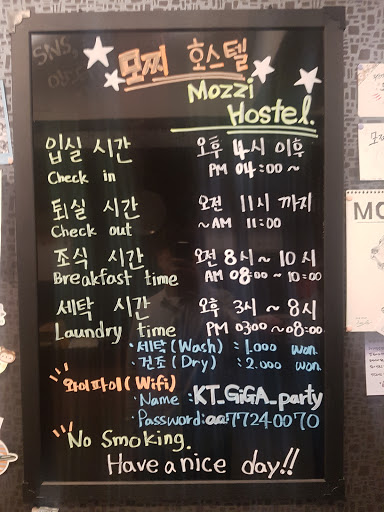 SNS,
모찌 호스텔
Mozzi
Hostel.
입실 시간 오후 4시 이후
Check in PM 04:00 ~
퇴실 시간 오전 11시 까지
Check out ~ AM 11:00
조식 시간 오전 8시 ~ 10시
Breakfast time AM 08:00 ~ 10:00
세탁 시간 오후 3시 ~ 8시
Laundry time PM 03:00 ~ 08:00
·세탁 (Wash) : 1.000 won.
·건조 (Dry) : 2.000 won.
와이파이 (Wifi)
·Name : KT_GiGA_party
·Password: aa7724-0070
No Smoking.
Have a nice day!!